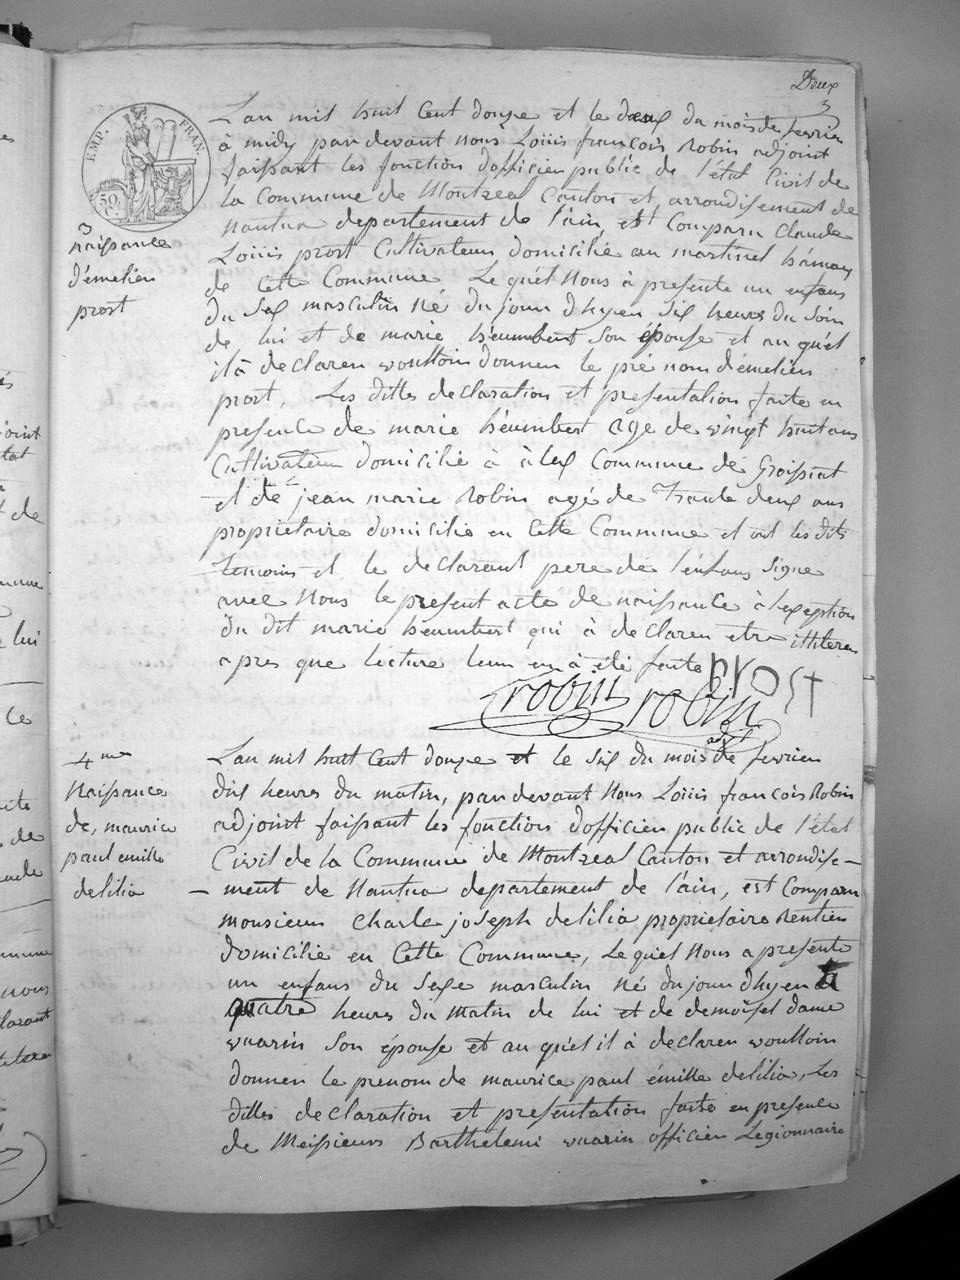 Deux
3
EMP. FRAN.
50 C.
L'an mil huit Cent douze et le deux du mois de fevrier
à midy pardevant nous Loüis françois Robin adjoint
faissant les fonction dofficier public de l'état Civil de
la Commune de Montreal Canton et, arrondisement de
nantua departement de l'ain, est Comparu Claude
Loüis prost Cultivateur domicilié au martinet hamau
de Cette Commune Lequél Nous à presenté un enfans
du Sex masculin né du jour dhyer Six heures du Soir
de lui et de marie heumbert Son épouse et au quél
il à declarer woulloir donner le pré nom d'émelien
prost, Les dittes declaration et presentation faite en
presence de marie heumbert age de vingt huit ans
Cultivateur domicilié à àlex Commune de Groissiat
et de jean marie Robin agé de Trante deux ans
proprietaire domicilié en Cette Commune et ont les dits
temoins et le declarant pere de l'enfans Signe
avec Nous le present acte de naissance à lexeption
du dit marie heumbert qui à declarer etre illiteré
apres que lecture leur en à été faite prost
robin robin
adjt
3
naissance
d'émelien
prost
4me
Naissance
de, maurice
paul emille
delilia
L'an mil huit Cent douze et le Six du mois de fevrier
dix heures du matin, pardevant Nous Loüis françois Robin
adjoint faissant les fonction dofficier public de l'état
Civil de la Commune de Montreal Canton et arrondise-
-ment de Nantua departement de l'ain, est Comparu
monsieur Charle joseph delilia proprietaire Rentier
domicilié en Cette Commune, Lequél Nous a presenté
un enfans du Sexe masculin Né du jour dhyer à
quatre heures du Matin de lui et de demoisel dame
vuarin Son épouse et au quél il à declarer woulloir
donner le prenom de maurice paul émille delilia, Les
dittes declaration et presentation faite en presence
de Meissieurs Barthelemi vuarin officier Legionnaire